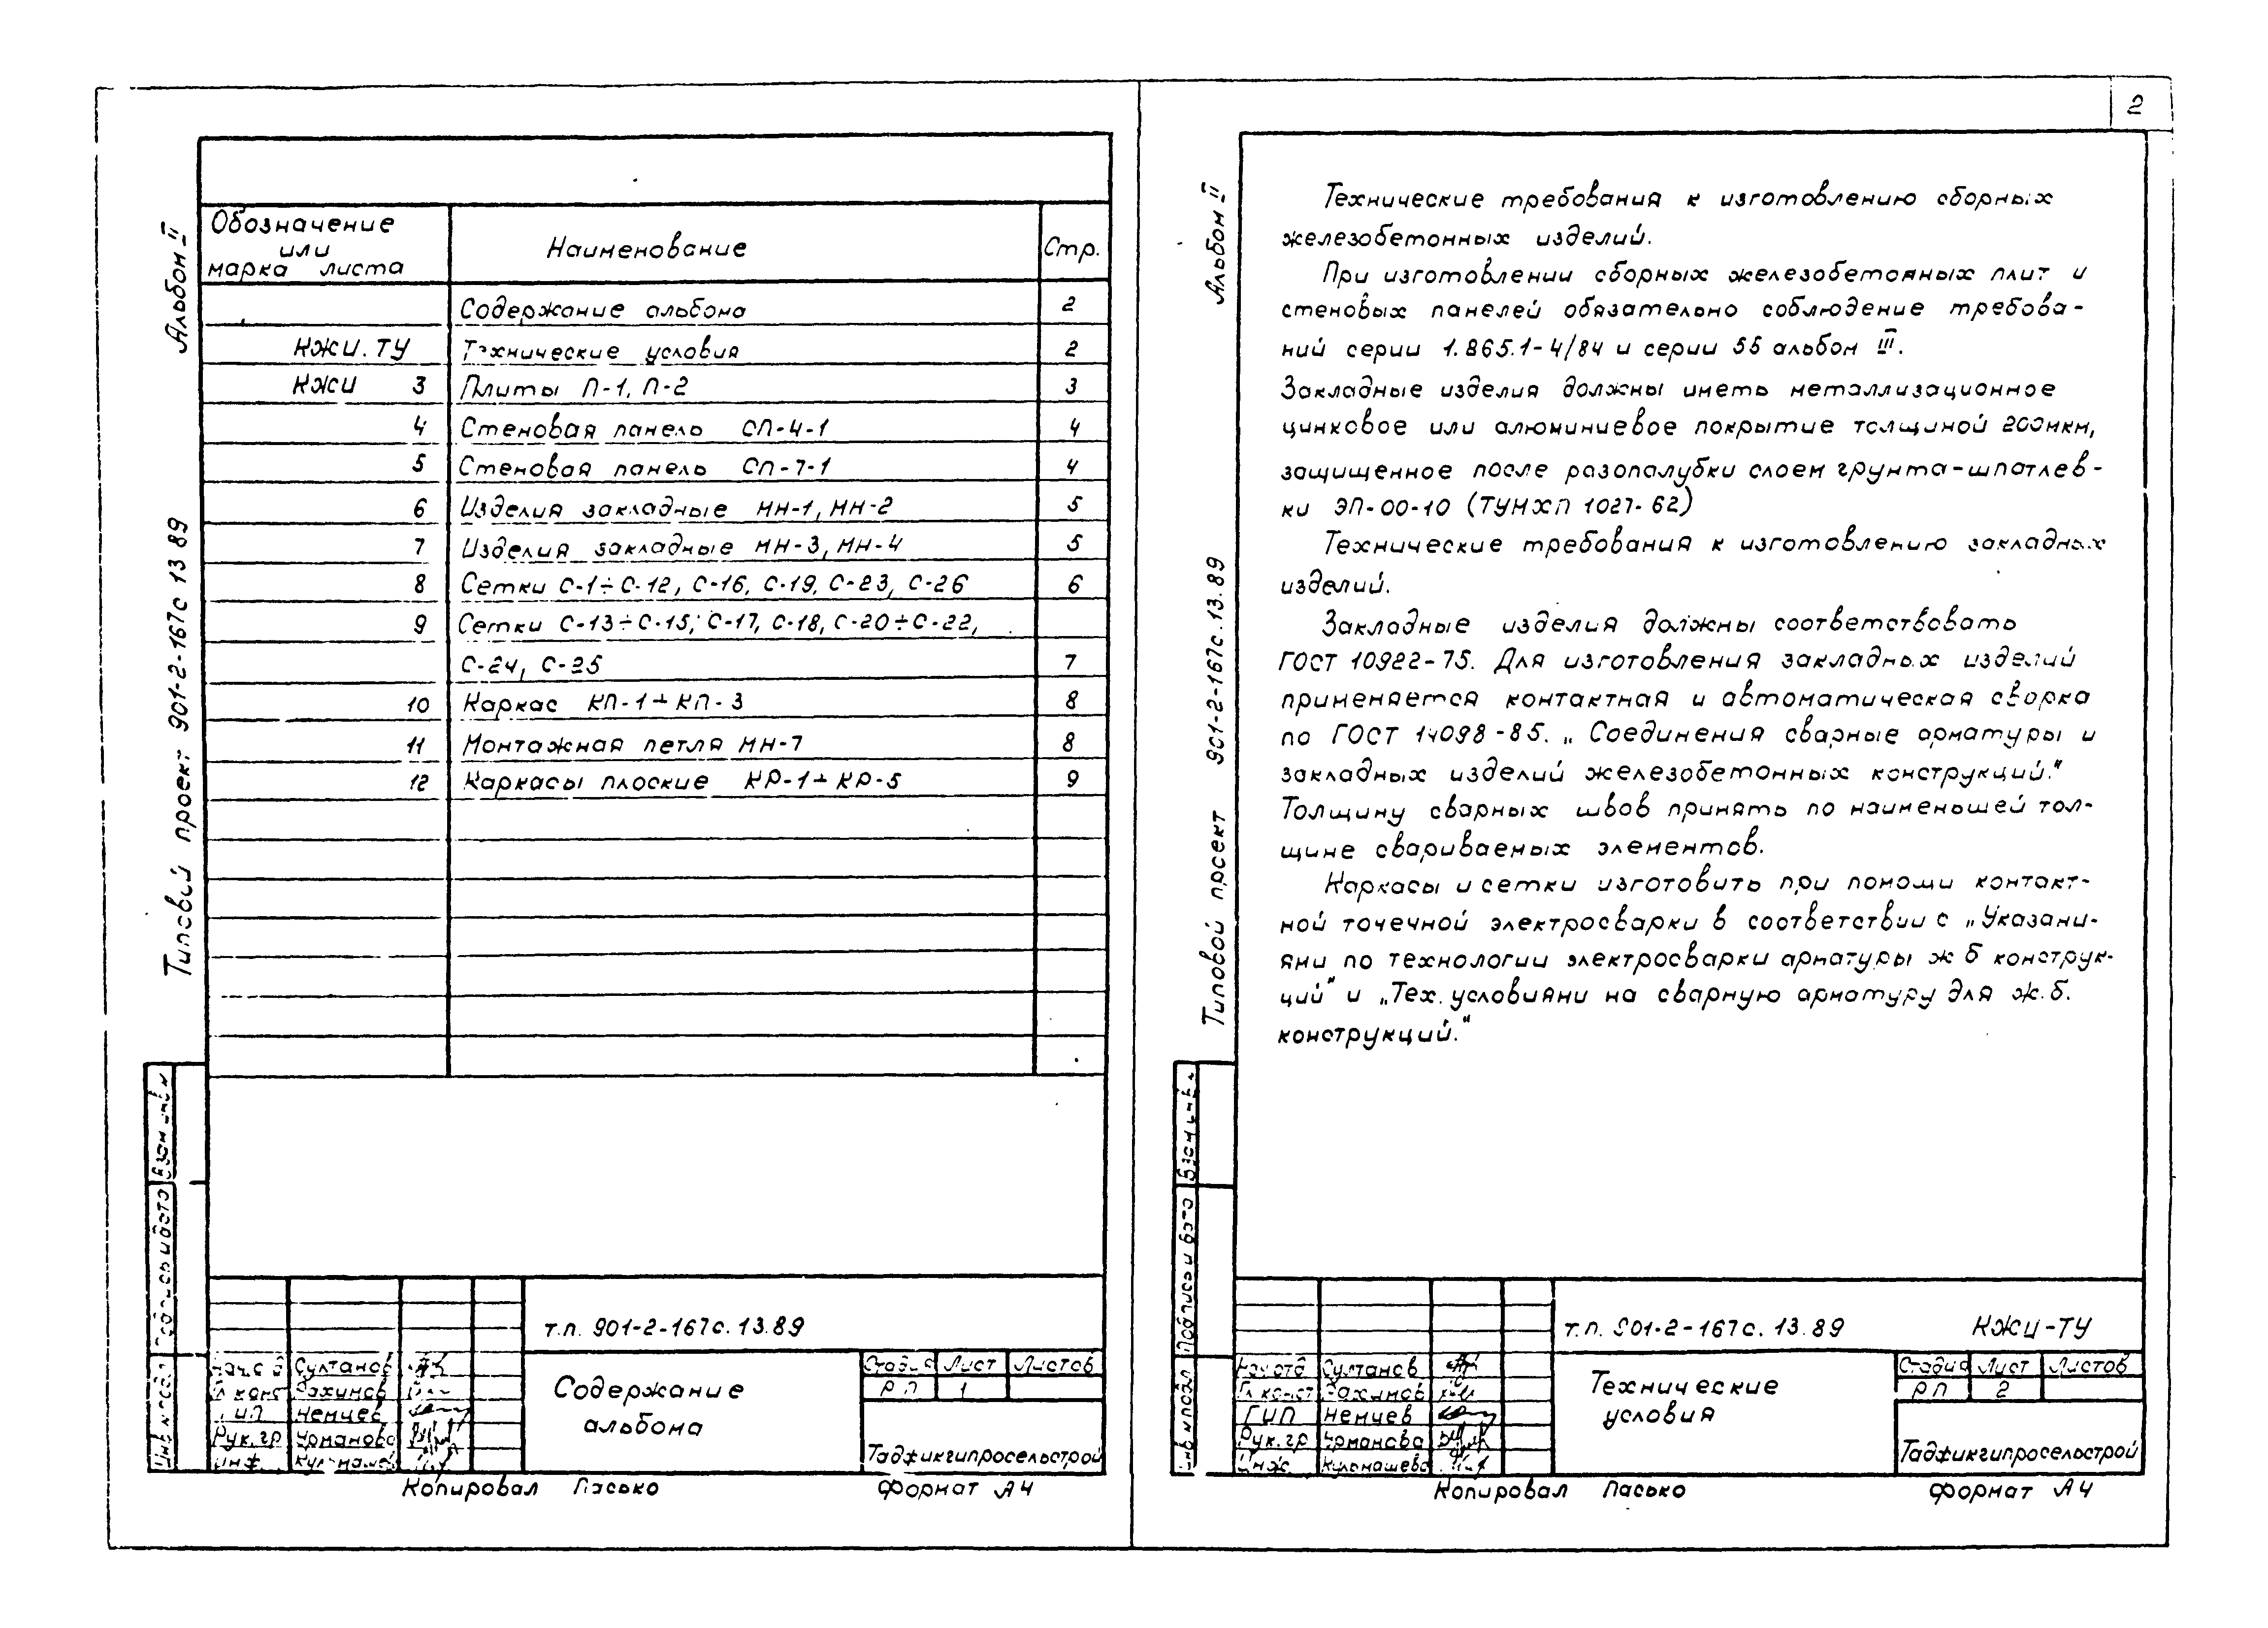 2
Альбом II
Типовой проект 901-2-167с 13 89
Обозначение или марка листа Наименование Стр.
Содержание альбома 2
КЖИ. ТУ Технические условия 2
КЖИ 3 Плиты П-1, П-2 3
4 Стеновая панель СП-4-1 4
5 Стеновая панель СП-7-1 4
6 Изделия закладные МН-1, МН-2 5
7 Изделия закладные МН-3, МН-4 5
8 Сетки С-1÷С-12, С-16, С-19, С-23, С-26 6
9 Сетки С-13÷С-15, С-17, С-18, С-20÷С-22,
С-24, С-25 7
10 Каркас КП-1÷КП-3 8
11 Монтажная петля МН-7 8
12 Каркасы плоские КР-1÷КР-5 9
т.п. 901-2-167с. 13.89
Султанов
Рахимов
ГИП Немцев
Рук.гр Урманова
Инж.
Содержание
альбома
Стадия Лист Листов
РП 1
Таджикгипросельстрой
Копировал Пасько Формат А4
Альбом II
Типовой проект 901-2-167с.13.89
Технические требования к изготовлению сборных
железобетонных изделий.
При изготовлении сборных железобетонных плит и
стеновых панелей обязательно соблюдение требова-
ний серии 1.865.1-4/84 и серии 55 альбом III.
Закладные изделия должны иметь металлизационное
цинковое или алюминиевое покрытие толщиной 200мкм,
защищенное после разопалубки слоем грунта-шпатлев-
ки ЭП-00-10 (ТУМХП 1027-62)
Технические требования к изготовлению закладных
изделий.
Закладные изделия должны соответствовать
ГОСТ 10922-75. Для изготовления закладных изделий
применяется контактная и автоматическая сварка
по ГОСТ 14098-85. „Соединения сварные арматуры и
закладных изделий железобетонных конструкций."
Толщину сварных швов принять по наименьшей тол-
щине свариваемых элементов.
Каркасы и сетки изготовить при помощи контакт-
ной точечной электросварки в соответствии с „Указани-
ями по технологии электросварки арматуры ж б конструк-
ций" и „Тех. условиями на сварную арматуру для ж.б.
конструкций."
Взам инв
Подпись и дата
Инв № подл
т.п. 901-2-167с. 13.89 КЖИ-ТУ
Нач отд Султанов
Гл конст Рахимов
ГИП Немцев
Рук.гр Урманова
Инж. Кульмашева
Технические
условия
Стадия Лист Листов
РП 2
Таджикгипросельстрой
Копировал Пасько Формат А4